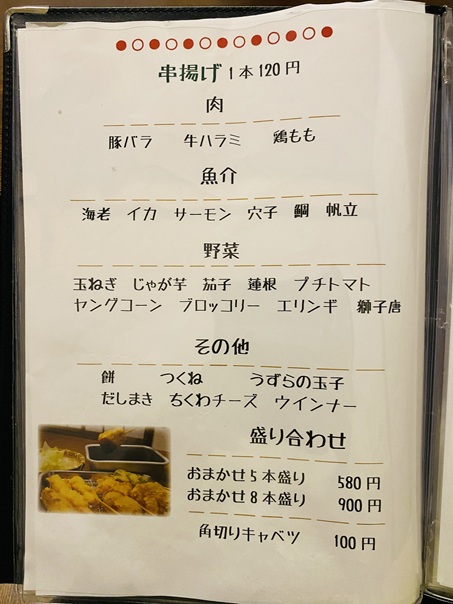 串揚げ 1本120円
肉
豚バラ 牛ハラミ 鶏もも
魚介
海老 イカ サーモン 穴子 鯛 帆立
野菜
玉ねぎ じゃが芋 茄子 蓮根 プチトマト
ヤングコーン ブロッコリー エリンギ 獅子唐
その他
餅 つくね うずらの玉子
だしまき ちくわチーズ ウインナー
盛り合わせ
おまかせ5本盛り 580円
おまかせ8本盛り 900円
角切りキャベツ 100円